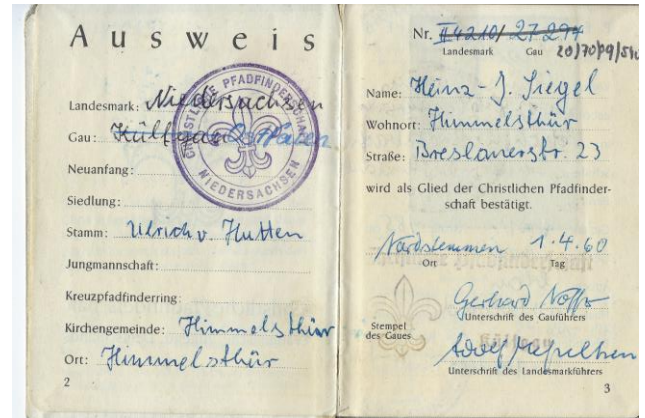 Ausweis
Landesmark: Niedersachsen
Gau: Hülfgau Ostfalen
Neuanfang:
Siedlung:
Stamm: Ulrich v. Hutten
Jungmannschaft:
Kreuzpfadfinderring:
Kirchengemeinde: Himmelsthür
Ort: Himmelsthür
2
CHRISTLICHE PFADFINDERSCHAFT
NIEDERSACHSEN
Nr. II 4210/ 27 294
Landesmark Gau
Name: Heinz-J. Siegel
Wohnort: Himmelsthür
Straße: Breslauerstr. 23
wird als Glied der Christlichen Pfadfinder-
schaft bestätigt.
Nordstemmen 1.4.60
Ort Tag
Gerhard
Unterschrift des Gauführers
Stempel
des Gaues
Adolf
Unterschrift des Landesmarkführers
3